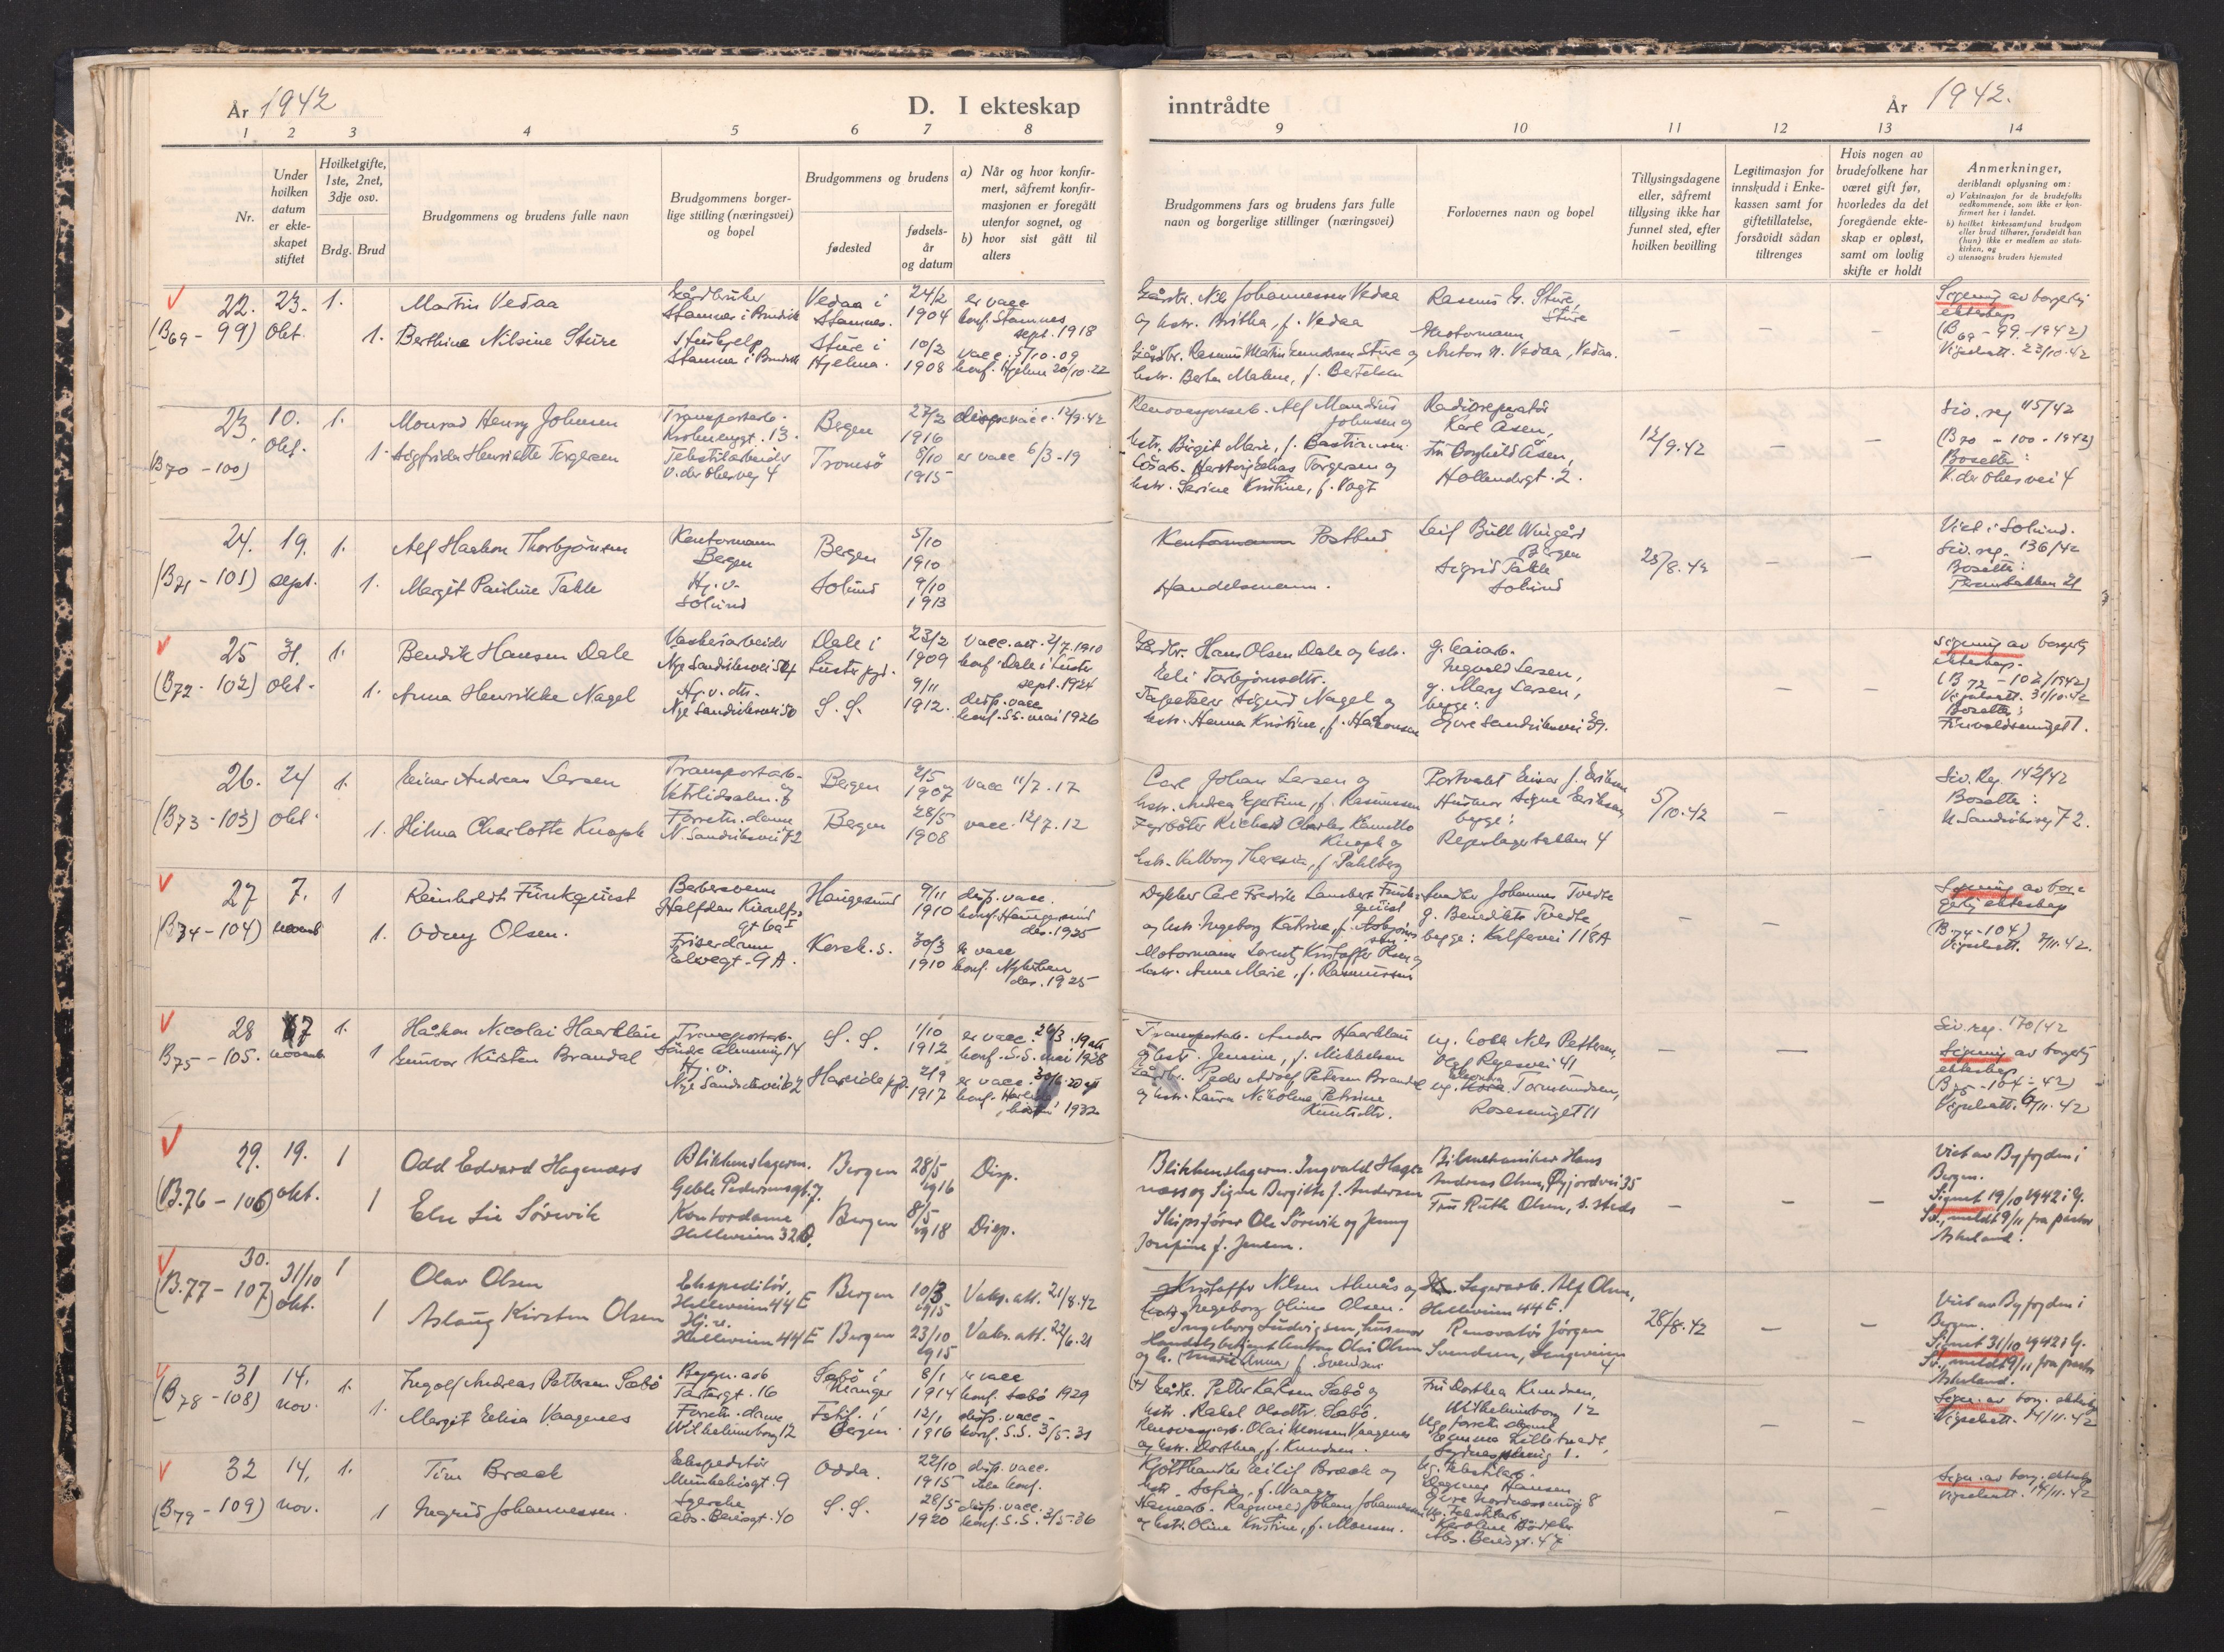 År 1942
D. I ekteskap
inntrådte
År 1942.
1 2 3 4 5 6 7 8 9 10 11 12 13 14
Nr.
Under hvilken datum er ekteskapet stiftet
Hvilketgifte, 1ste, 2net, 3dje osv.
Brdg. Brud
Brudgommens og brudens fulle navn
Brudgommens borgerlige stilling (næringsvei) og bopel
Brudgommens og brudens
fødested
fødselsår og datum
a) Når og hvor konfirmert, såfremt konfirmasjonen er foregått utenfor sognet, og
b) hvor sist gått til alters
Brudgommens fars og brudens fars fulle navn og borgerlige stillinger (næringsvei)
Forlovernes navn og bopel
Tillysingsdagene eller, såfremt tillysing ikke har funnet sted, efter hvilken bevilling
Legitimasjon for innskudd i Enkekassen samt for giftetillatelse, forsåvidt sådan tiltrenges
Hvis nogen av brudefolkene har været gift før, hvorledes da det foregående ekteskap er opløst, samt om lovlig skifte er holdt
Anmerkninger,
deriblandt oplysning om:
a) Vaksinasjon for de brudefolks vedkommende, som ikke er konfirmert her i landet.
b) hvilket kirkesamfund brudgom eller brud tilhører, forsåvidt han (hun) ikke er medlem av statskirken, og
c) utensogns bruders hjemsted
22. 23. 1. Martin Vedaa Gårdbruker Vedaa i 24/2 er vacc
(B69 - 99) okt. Stamnes 1904 konf. Stamnes sept. 1918
1. Berthine Nilsine Sture Sture i 10/2 vacc. 5/10.09
Hjelma. 1908 konf. Hjelma 20/10.22
Gårdbr. Nils Johannessen Vedaa
og hstr. Britha, f. Vedaa
Gårdbr. Rasmus Martin Gundersen Sture og
hstr. Berta Malene, f. Bertelsen
Rasmus G. Sture,
Sture
Motormann
Anton N. Vedaa, Vedaa.
Signing av borgerlig
ekteskap
(B69 - 99 - 1942)
Vigselsatt. 23/10.42
23. 10. 1. Monrad Henry Johnsen Transportarb. Bergen 27/2 disp. vacc. 12/9.42
okt. Krohnengt. 13. 1916
(B70 - 100) 1. Sigfrida Henriette Torgersen Tekstilarbeider Tromsö 8/10 er vacc 6/3-19
v. der Ohesvej 4 1915
Renovasjonsarb. Alf Mandius
Johnsen og
hstr. Birgit Marie, f. Bastiansen
Lösarb. Hartvig Elias Torgersen og
hstr. Serine Kristine, f. Vogt
Radioreparatör
Karl Åsen,
Fru Borghild Åsen,
Hollendergt. 2.
12/9.42
Siv. reg 115/42
(B70 - 100 - 1942)
Bosette:
v. der Ohes vei 4
24. 19. 1. Alf Haakon Thorbjörnsen Kontormann Bergen 5/10
Bergen 1910
(B71 - 101) sept. 1. Margit Pauline Takle Hj. v. Solund 9/10
Solund 1913
Kontormann Postbud
Handelsmann.
Leif Bull Wingård
Bergen
Sigrid Takle
Solund
25/8.42
Viet i Solund.
Siv. reg. 136/42
Bosette:
25 31. 1. Bendik Hansen Dale Dale i 23/2 vacc. att. 2/7.1910
Luster pgd. 1909 konf. Dale i Luster sept. 1924
(B72 - 102) okt. 1. Anna Henrikke Nagel Hj. v. dtr. S. S. 9/11 disp. vacc
Nye Sandviksvei 50 1912. konf. S.S. mai 1926
Gårdbr. Hans Olsen Dale og hstr.
Eli Torbjörnsdtr.
Tapetserer Sigurd Nagel og
hstr. Hanna Kristine, f. Hakonsen
g. kaiarb.
Ingvald Larsen,
g. Mary Larsen,
begge:
Övre Sandviksvei 39.
Signing av borgerlig
ekteskap.
(B72 - 102/1942)
Vigselsatt. 31/10.42
Bosette:
26. 24 1. Einar Andreas Larsen Transportarb. Bergen 2/5 vacc 11/7.17
Vetrlidsalm. 7 1907
(B73 - 103) okt. 1. Hilma Charlotte Knaph Forretn. dame Bergen 28/5 vacc. 12/7.12
N. Sandviksvei 72 1908
Carl Johan Larsen og
hstr. Andrea Egertine, f. Rasmussen
Fyrböter Richard Charles
Knaph og
hstr. Valborg Theresia, f. Pahlberg
Portvakt Einar J. Eriksen
Husmor Signe Eriksen,
begge:
Reperbanebakken 4
5/10.42
Siv. Reg 142/42
Bosette:
N. Sandviksvej 72.
27 7. 1 Reinholdt Funkquist Barbersvenn Haugesund 9/11 disp. vacc.
1910 konf. Haugesund des. 1925
(B74 - 104) novemb 1. Odny Olsen. Friserdame Korsk. s. 30/3 er vacc
Elvegt. 9 A. 1910 konf. Nykirken des. 1925
Dykker Carl Fredrik Lambert Funkquist
og hstr. Ingeborg Katrine, f. Asbjörnsen
Motormann Lorentz Kristoffer Olsen og
hstr. Anna Marie, f. Rasmussen
Snedker Johannes Tvedte
g. Benedikte Tvedte,
begge: Kalfarvei 118A
Signing av borgerlig ekteskap
(B74 - 104)
Vigselsatt. 7/11.42.
28 7 1. Håkon Nicolai Haarklau Transportarb. S. S. 1/10 er vacc. 20/3.19 att
Söndre Almenning 14 1912 konf. S.S. mai 1928
B75 - 105. novemb 1 Gunvor Kirsten Brandal Hj. v. Hareide pgd. 2/9 er vacc. 30/6.20
Nye Sandviksvei 62 1917 konf. Hareide höst 1932
Transportarb. Anders Haarklau
og hstr. Jensine, f. Mikkelsen
Gårdbr. Peder Adolf Petersen Brandal
og hstr. Laura Nikoline Petrine
Knutsdtr.
ug. Nils Pettersen,
Olaf Ryesvei 41
Rosesmuget 11
Siv. reg. 170/42
Signing av borgerlig
ekteskap
(B75 - 104 - 42)
Vigselsatt. 6/11.42
29. 19. 1 Odd Edvard Hagenæs Blikkenslagerm. Bergen 28/5 Disp.
Geble Pedersensgt. 7. 1916
(B.76 - 106) okt. 1 Else Lie Sörvik Kontordame Bergen 8/5 Disp.
Helleveien 32 1918
Blikkenslagerm. Ingvald Hagenæs og Signe Bergitte f. Andersen
Skipsförer Ole Sörvik og Jenny
Josefine f. Jensen.
Bilmekaniker Hans
Andreas Olsen, Öyjordsvei 35
Fru Ruth Olsen, s. steds
Viet av Byfogden i
Bergen.
Signet 19/10 1942 i G.
Sv., meldt 9/11 fra pastor
Askeland.
30. 31/10 1 Olav Olsen Ekspeditör, Bergen 10/3 Vaks. att. 21/8.42
Helleveien 44 E 1915
(B.77 - 107) okt. 1 Aslaug Kirsten Olsen Hj. v. Bergen 23/10 Vaks. att. 22/6.21
Helleveien 44 E 1915
Kristoffer Nilsen Almås og
Ingeborg Oline Olsen.
Ingeborg Ludvigsen, husmor
Handelsbetjent Anton Olai Olsen
og h. (Marie Anna) f. Svendsen
Lagerarb. Alf Olsen,
Helleveien 44 E.
Renovatör Jörgen
Svendsen,
28/8.42
Viet av Byfogden i
Bergen.
Signet 31/10 1942 i G.
Sv., meldt 9/11 fra pastor
Askeland.
31 14. 1. Ingolf Andreas Pettersen Sæbö Byggn. arb Sæbö i 8/1 er vacc
Tartargt. 16 Manger 1914 konf. Sæbö 1929
(B78 - 108) nov. 1. Margit Elisa Vaagenes Forretn. dame Fstif. i 12/1 disp. vacc.
Wilhelminborg 12 Bergen 1916 konf. S.S. 3/5.31
Gårdbr. Petter Karlsen Sæbö og
hstr. Rakel Olsdtr. Sæbö.
Renovasj. arb. Olai Monsen Vaagenes
og hstr. Dorthea, f. Knudsen.
Fru Dorthea Knudsen,
Wilhelminborg 12
Ug. forretn. dame
Lilletvedt,
Sign. av borg. ekteskap
Vigselsatt. 14/11.42
32 14. 1. Tim Braek Ekspeditör Odda. 22/10 disp. vacc.
Munkebisgt. 9 1915 ikke konf.
(B79 - 109) nov. 1 Ingrid Johannessen. Syerske S. S. 28/5 disp. vacc.
Abs. Beiersgt. 40 1920 konf. S.S. 3/5.36
Kjötthandler Eilif Braek og
hstr. Sofia, f. Waage
Ragnvald Johan Johannessen
og hstr. Oline Kristine, f. Monsen.
ug. Tekstilarb.
Dagmar Hansen
Övre Nordnessmug 8
Ug. Tekstilarb.
Karoline Bödtker
Abs. Beiersgt. 47
Sign. av borg. ekteskap
Vigselsatt. 14/11.42